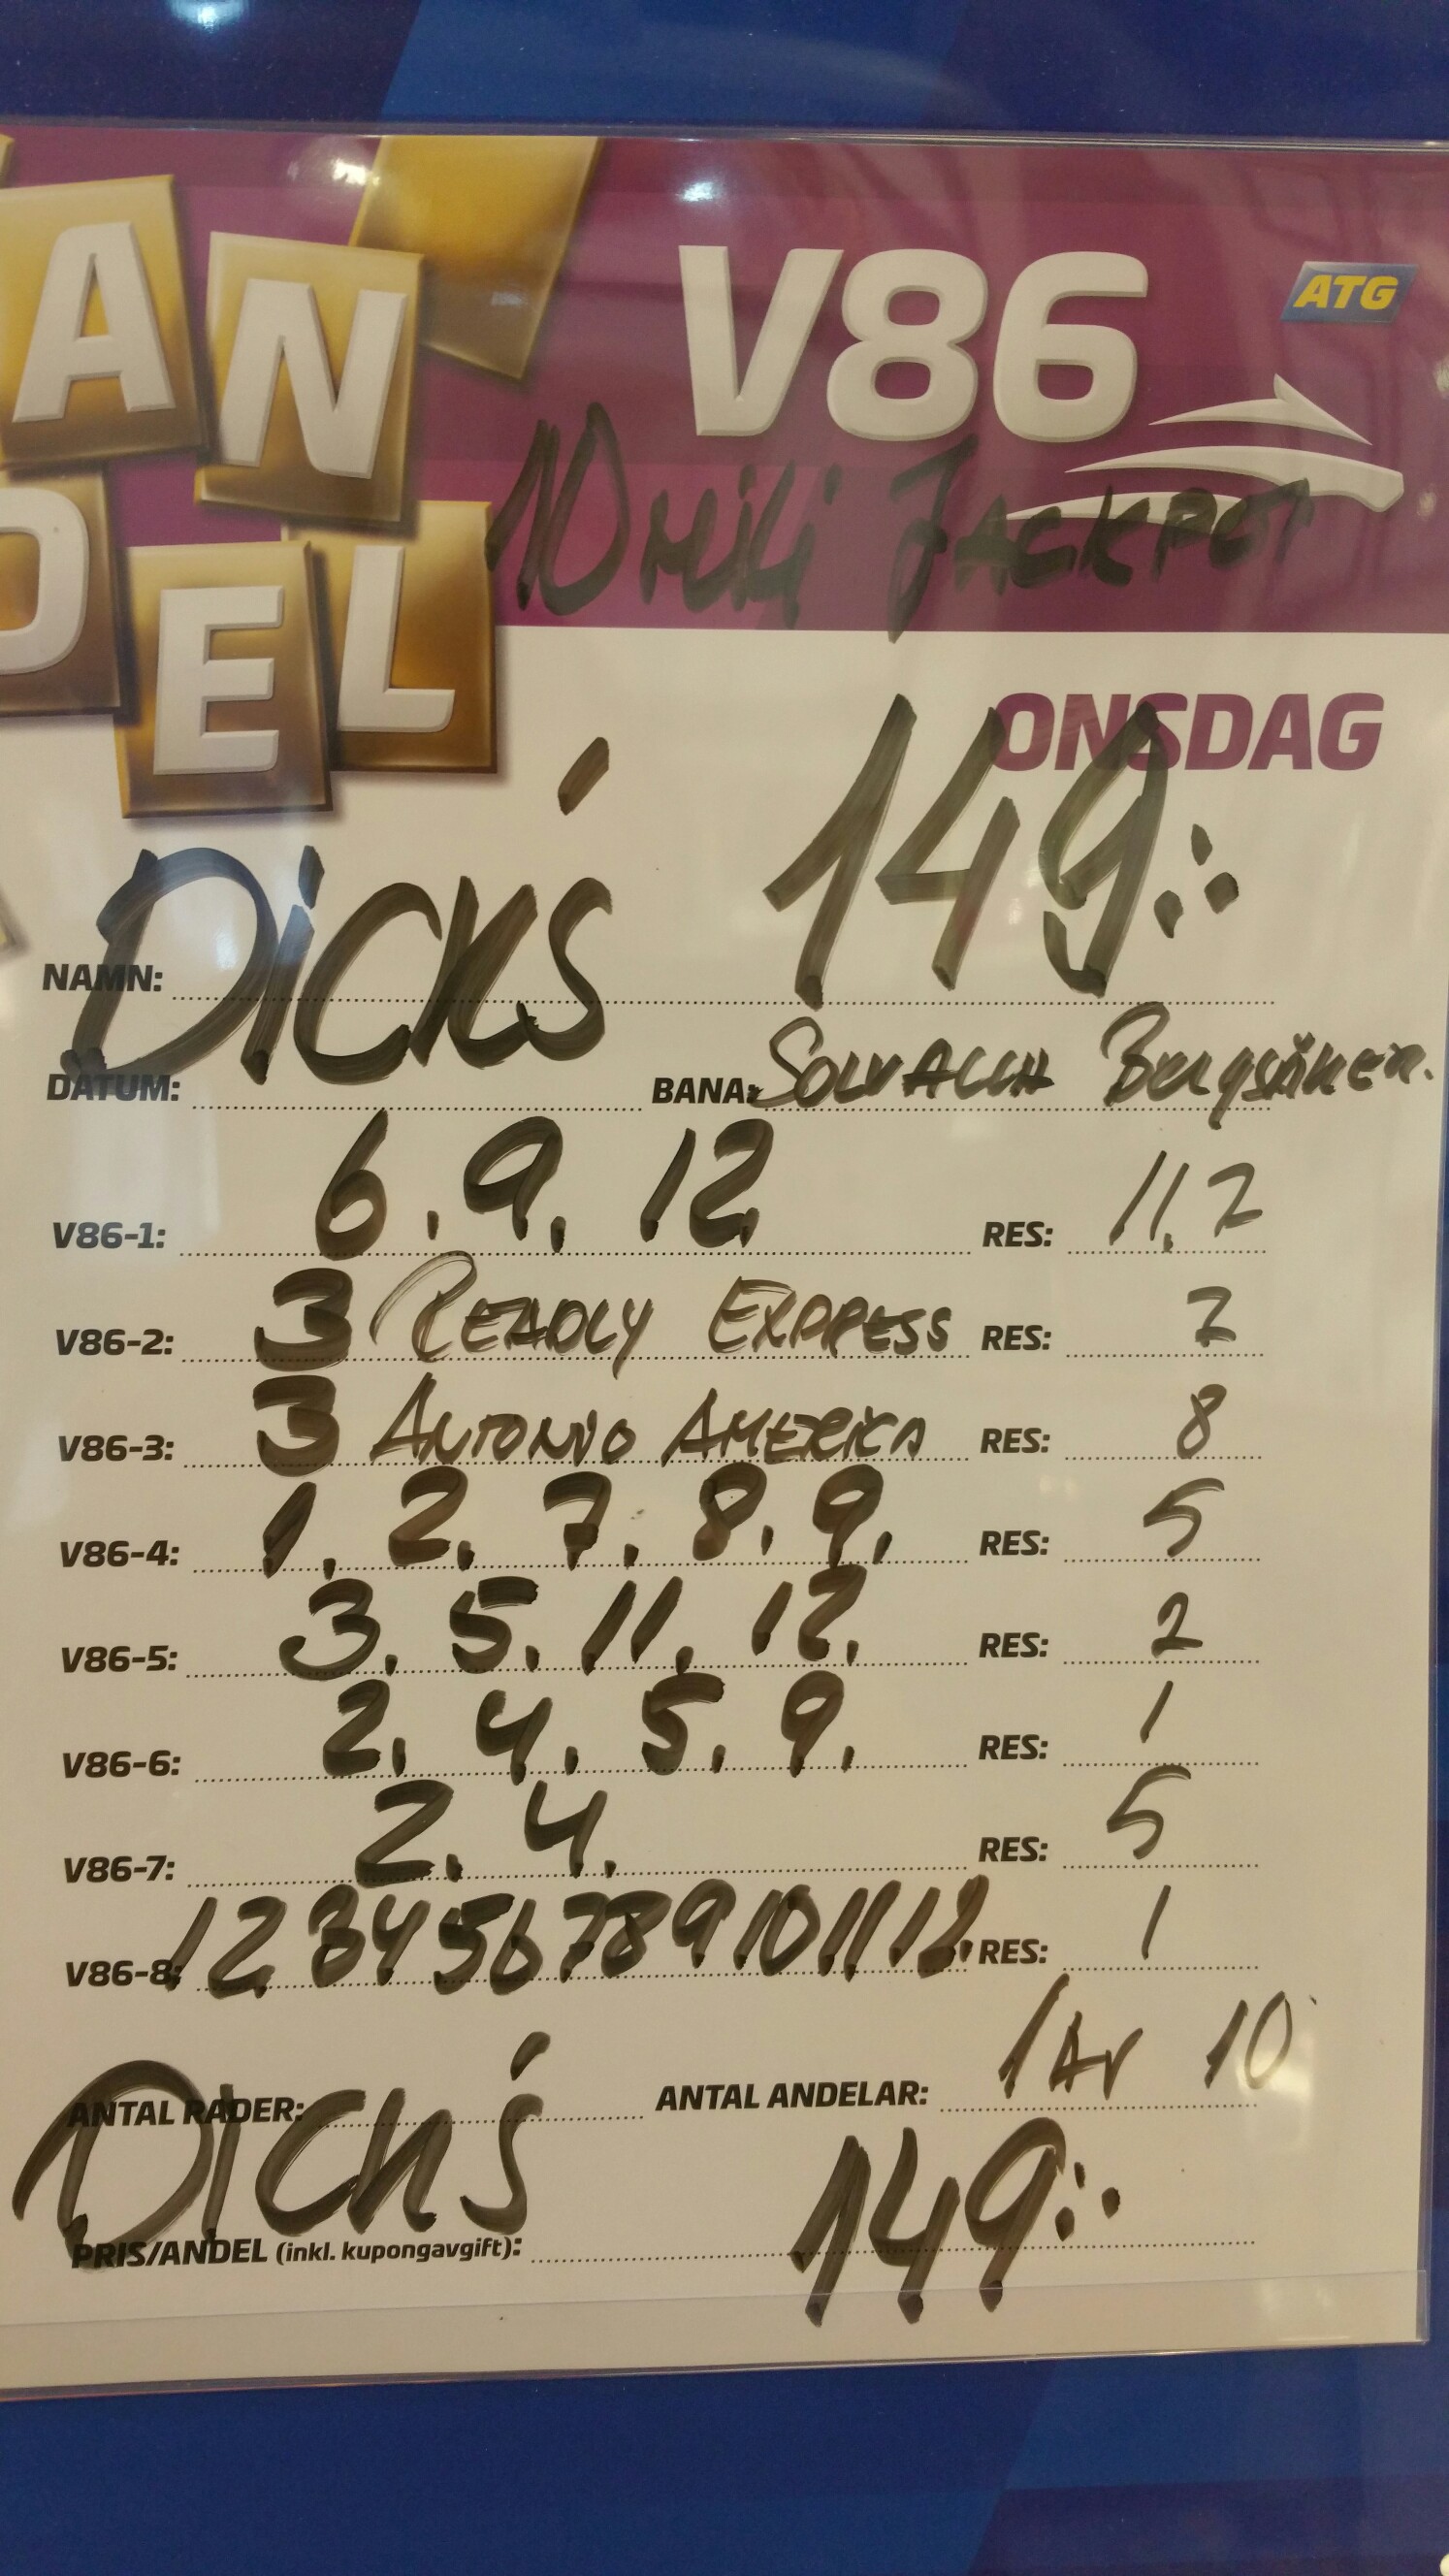 AN
DEL
V86
ATG
10 milj JACKPOT
ONSDAG
149:-
NAMN: DICKS
DATUM: BANA: SOLVALLA Bergsåker.
V86-1: 6. 9. 12. RES: 11, 2
V86-2: 3 READLY EXPRESS RES: 2
V86-3: 3 ANTONIO AMERICA RES: 8
V86-4: 1. 2. 7. 8. 9. RES: 5
V86-5: 3. 5. 11. 12. RES: 2
V86-6: 2. 4. 5. 9. RES: 1
V86-7: 2. 4. RES: 5
V86-8: 1 2 3 4 5 6 7 8 9 10 11 12. RES: 1
ANTAL RADER: ANTAL ANDELAR: 1 AV 10
DICKS
PRIS/ANDEL (inkl. kupongavgift): 149:-